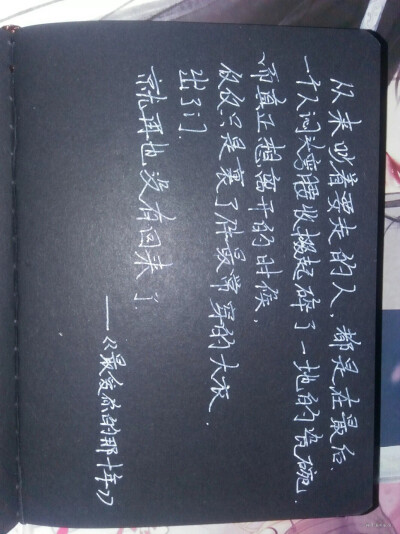 从来吵着要走的人,都是在最后.
一个人闷头弯腰收拾起碎了一地的瓷碗.
而真正想离开的时候.
仅仅只是裹了件最常穿的大衣.
出了门.
就再也没有回来了.
——《最爱你的那十年》